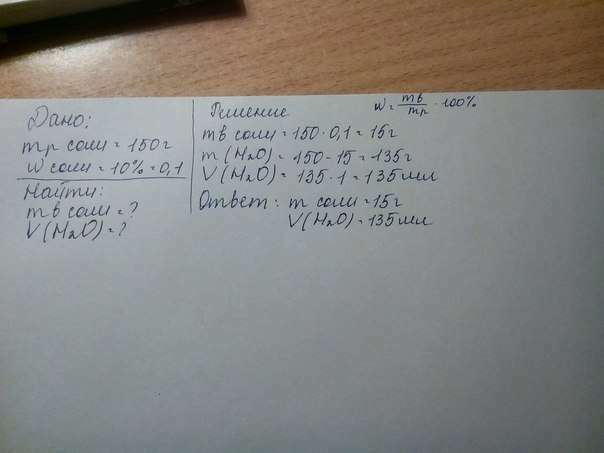 Дано:
mр соли = 150г
w соли = 10% = 0,1
Найти:
mв соли = ?
V(H2O) = ?
Решение
w = mв/mр · 100%
mв соли = 150 · 0,1 = 15г
m(H2O) = 150 - 15 = 135г
V(H2O) = 135 · 1 = 135 мл
Ответ: m соли = 15г
V(H2O) = 135 мл